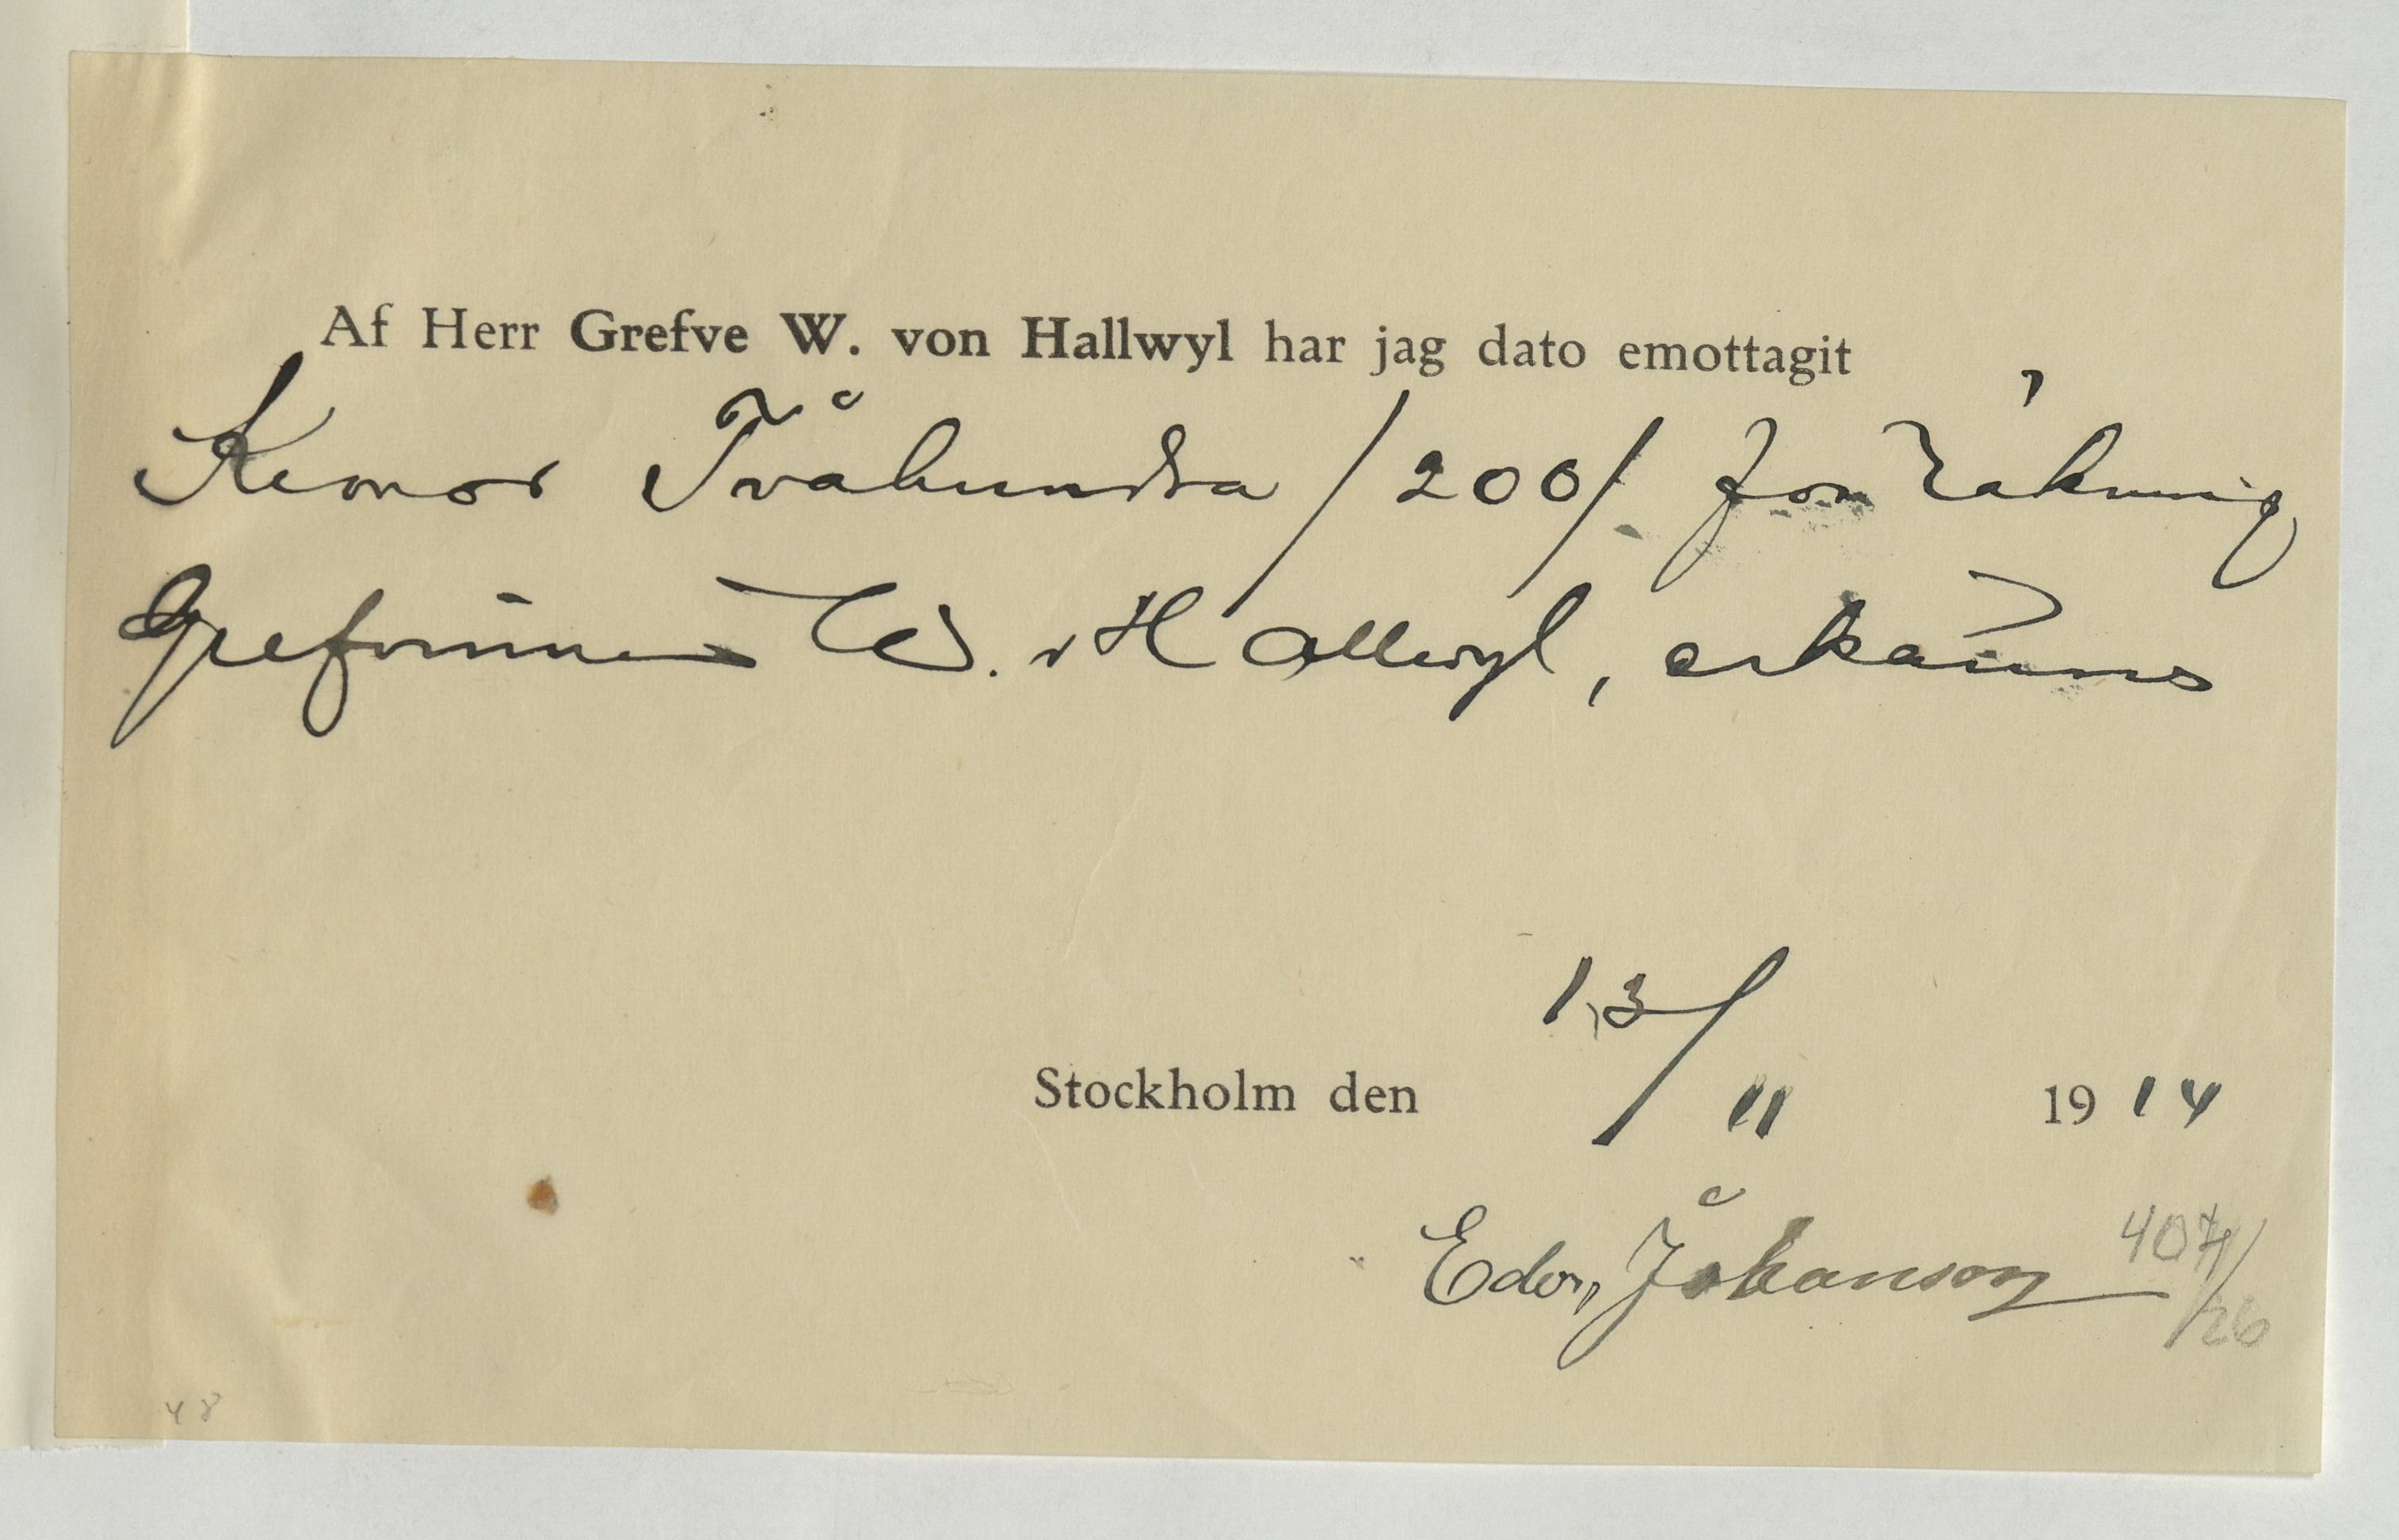 Af Herr Grefve W. von Hallwyl har jag dato emottagit
Kronor Tvåhundra /200/ för räkning
Grefvinnan W. v Hallwyl, erkännes
13/11
Stockholm den 1914
Edv. Johanson
407/26
48